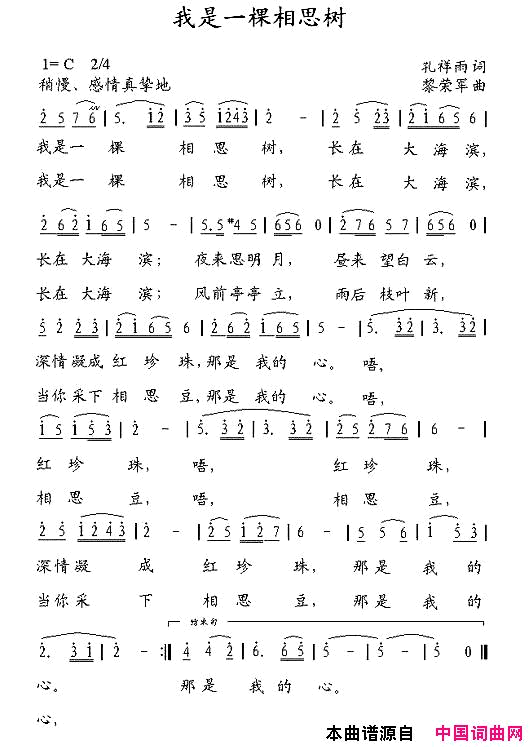 我是一棵相思树
1=C 2/4 孔祥雨 词
稍慢、感情真挚地 黎荣军 曲
2 5 7 6 | 5. 1 2 | 3 5 1 2 4 3 | 2 - | 2 5 2 3 | 2 1 6 5 6 |
我是一 棵 相 思 树, 长在 大 海 滨,
我是一 棵 相 思 树, 长在 大 海 滨,
2 6 2 1 6 5 | 5 - | 5.5 #4 5 | 6 5 6 0 | 2 7 6 5 7 | 6 5 6 0 |
长在 大海 滨; 夜来思明 月, 昼来 望白 云,
长在 大海 滨; 风前亭亭 立, 雨后 枝叶 新,
5 2 2 3 | 2 1 6 5 | 2 6 2 1 6 5 | 5 - | 5. 3 2 | 3. 3 2 |
深情凝成 红 珍 珠,那是 我的 心。 唔,
当你采下 相 思 豆,那是 我的 心。 唔,
1 5 1 5 3 | 2 - | 5. 3 2 | 3. 3 2 | 2 5 2 7 6 | 6 - |
红 珍 珠, 唔, 红 珍 珠,
相 思 豆, 唔, 相 思 豆,
2 5 1 2 4 3 | 2 - | 2 5 1 2 7 | 6 - | 5 5 6 | 1 5 3 |
深情凝 成 红 珍 珠, 那 是 我 的
当你采 下 相 思 豆, 那 是 我 的
结束句
2. 3 1 | 2 - :| 4 4 2 | 6. 1 | 5 - | 5 0 ‖
心。 那是 我 的 心。
心,
本曲谱源自 中国词曲网